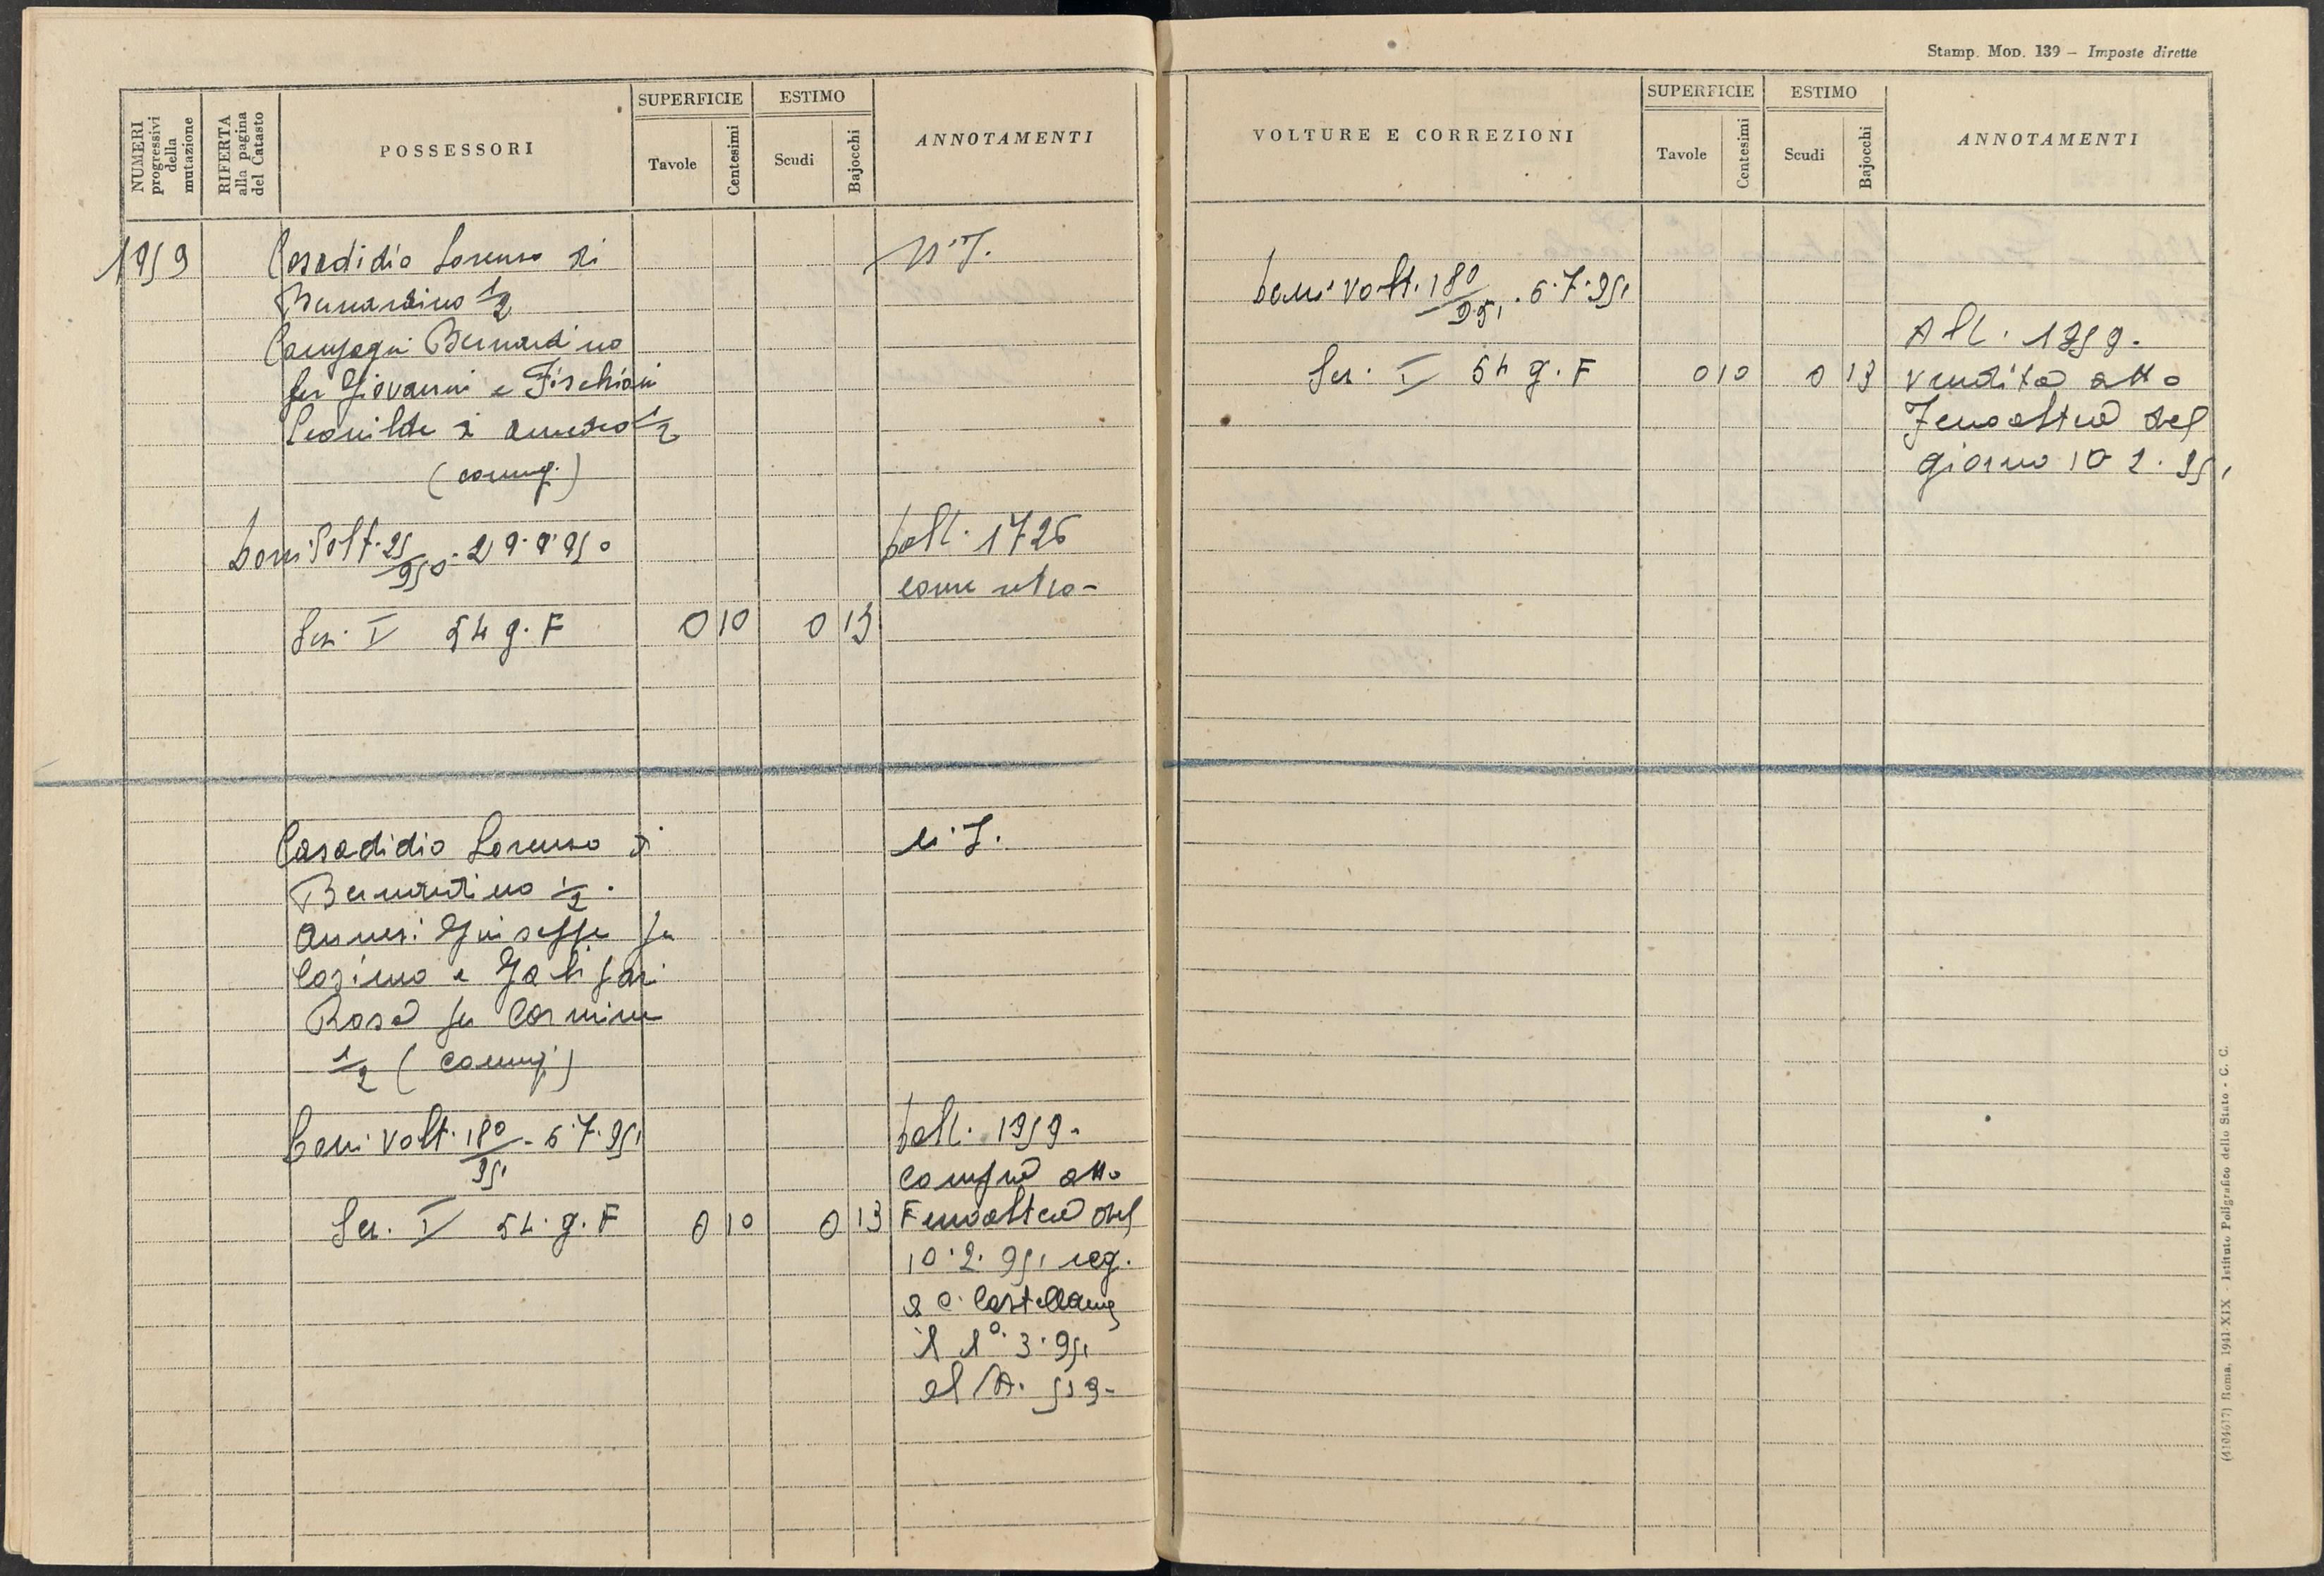 NUMERI progressivi della mutazione
RIFERTA alla pagina del Catasto
POSSESSORI
SUPERFICIE
Tavole
Centesimi
ESTIMO
Scudi
Bajocchi
ANNOTAMENTI
1959
Casadidio Lorenzo di
Bernardino 1/2
Bernardino
fu Giovanni e Fischioni
1/2
(coniug.)
N.T.
25/950 . 29.9.950
dall. 1726
come retro -
Sez. V 54 g. F 0 10 0 13
Casadidio Lorenzo di
Bernardino 1/2 .
Giuseppe fu
Cosimo e
Rosa fu Carmine
1/2 (coniug.)
N.T.
Beni Volt. 180/951 - 6.7.951
Sez. V 54. g. F 0 10 0 13
dall. 1959 -
Compra atto
Fenoaltea del
10.2.951 reg.
a C. Castellana
il 1°.3.951
al N. 519 -
Stamp. Mod. 139 – Imposte dirette
VOLTURE E CORREZIONI
SUPERFICIE
Tavole
Centesimi
ESTIMO
Scudi
Bajocchi
ANNOTAMENTI
beni Volt. 180/951 . 6.7.951
Sez. V 54 g. F 0 10 0 13
All. 1959 -
Vendita atto
Fenoaltea del
giorno 10 2. 951
(4104617) Roma, 1941-XIX - Istituto Poligrafico dello Stato - C. C.